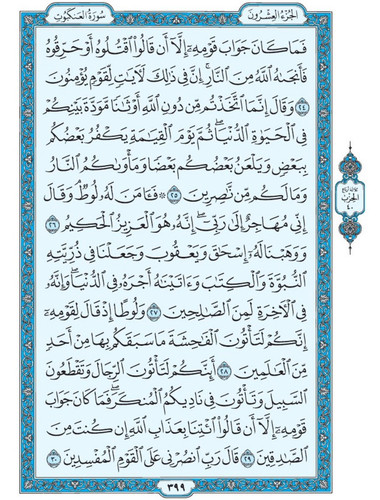 الجزء العشرون
سورة العنكبوت
فَمَا كَانَ جَوَابَ قَوْمِهِۦٓ إِلَّآ أَن قَالُوا۟ ٱقْتُلُوهُ أَوْ حَرِّقُوهُ
فَأَنجَىٰهُ ٱللَّهُ مِنَ ٱلنَّارِ ۚ إِنَّ فِى ذَٰلِكَ لَـَٔايَـٰتٍ لِّقَوْمٍ يُؤْمِنُونَ
٢٤ وَقَالَ إِنَّمَا ٱتَّخَذْتُم مِّن دُونِ ٱللَّهِ أَوْثَـٰنًا مَّوَدَّةَ بَيْنِكُمْ
فِى ٱلْحَيَوٰةِ ٱلدُّنْيَا ۖ ثُمَّ يَوْمَ ٱلْقِيَـٰمَةِ يَكْفُرُ بَعْضُكُم
بِبَعْضٍ وَيَلْعَنُ بَعْضُكُم بَعْضًا وَمَأْوَىٰكُمُ ٱلنَّارُ
وَمَا لَكُم مِّن نَّـٰصِرِينَ ٢٥ ۞ فَـَٔامَنَ لَهُۥ لُوطٌ ۘ وَقَالَ
إِنِّى مُهَاجِرٌ إِلَىٰ رَبِّىٓ ۖ إِنَّهُۥ هُوَ ٱلْعَزِيزُ ٱلْحَكِيمُ ٢٦
وَوَهَبْنَا لَهُۥٓ إِسْحَـٰقَ وَيَعْقُوبَ وَجَعَلْنَا فِى ذُرِّيَّتِهِ
ٱلنُّبُوَّةَ وَٱلْكِتَـٰبَ وَءَاتَيْنَـٰهُ أَجْرَهُۥ فِى ٱلدُّنْيَا ۖ وَإِنَّهُۥ
فِى ٱلْـَٔاخِرَةِ لَمِنَ ٱلصَّـٰلِحِينَ ٢٧ وَلُوطًا إِذْ قَالَ لِقَوْمِهِۦٓ
إِنَّكُمْ لَتَأْتُونَ ٱلْفَـٰحِشَةَ مَا سَبَقَكُم بِهَا مِنْ أَحَدٍ
مِّنَ ٱلْعَـٰلَمِينَ ٢٨ أَئِنَّكُمْ لَتَأْتُونَ ٱلرِّجَالَ وَتَقْطَعُونَ
ٱلسَّبِيلَ وَتَأْتُونَ فِى نَادِيكُمُ ٱلْمُنكَرَ ۖ فَمَا كَانَ جَوَابَ
قَوْمِهِۦٓ إِلَّآ أَن قَالُوا۟ ٱئْتِنَا بِعَذَابِ ٱللَّهِ إِن كُنتَ مِنَ
ٱلصَّـٰدِقِينَ ٢٩ قَالَ رَبِّ ٱنصُرْنِى عَلَى ٱلْقَوْمِ ٱلْمُفْسِدِينَ ٣٠
الحزب
٤٠
٣٩٩